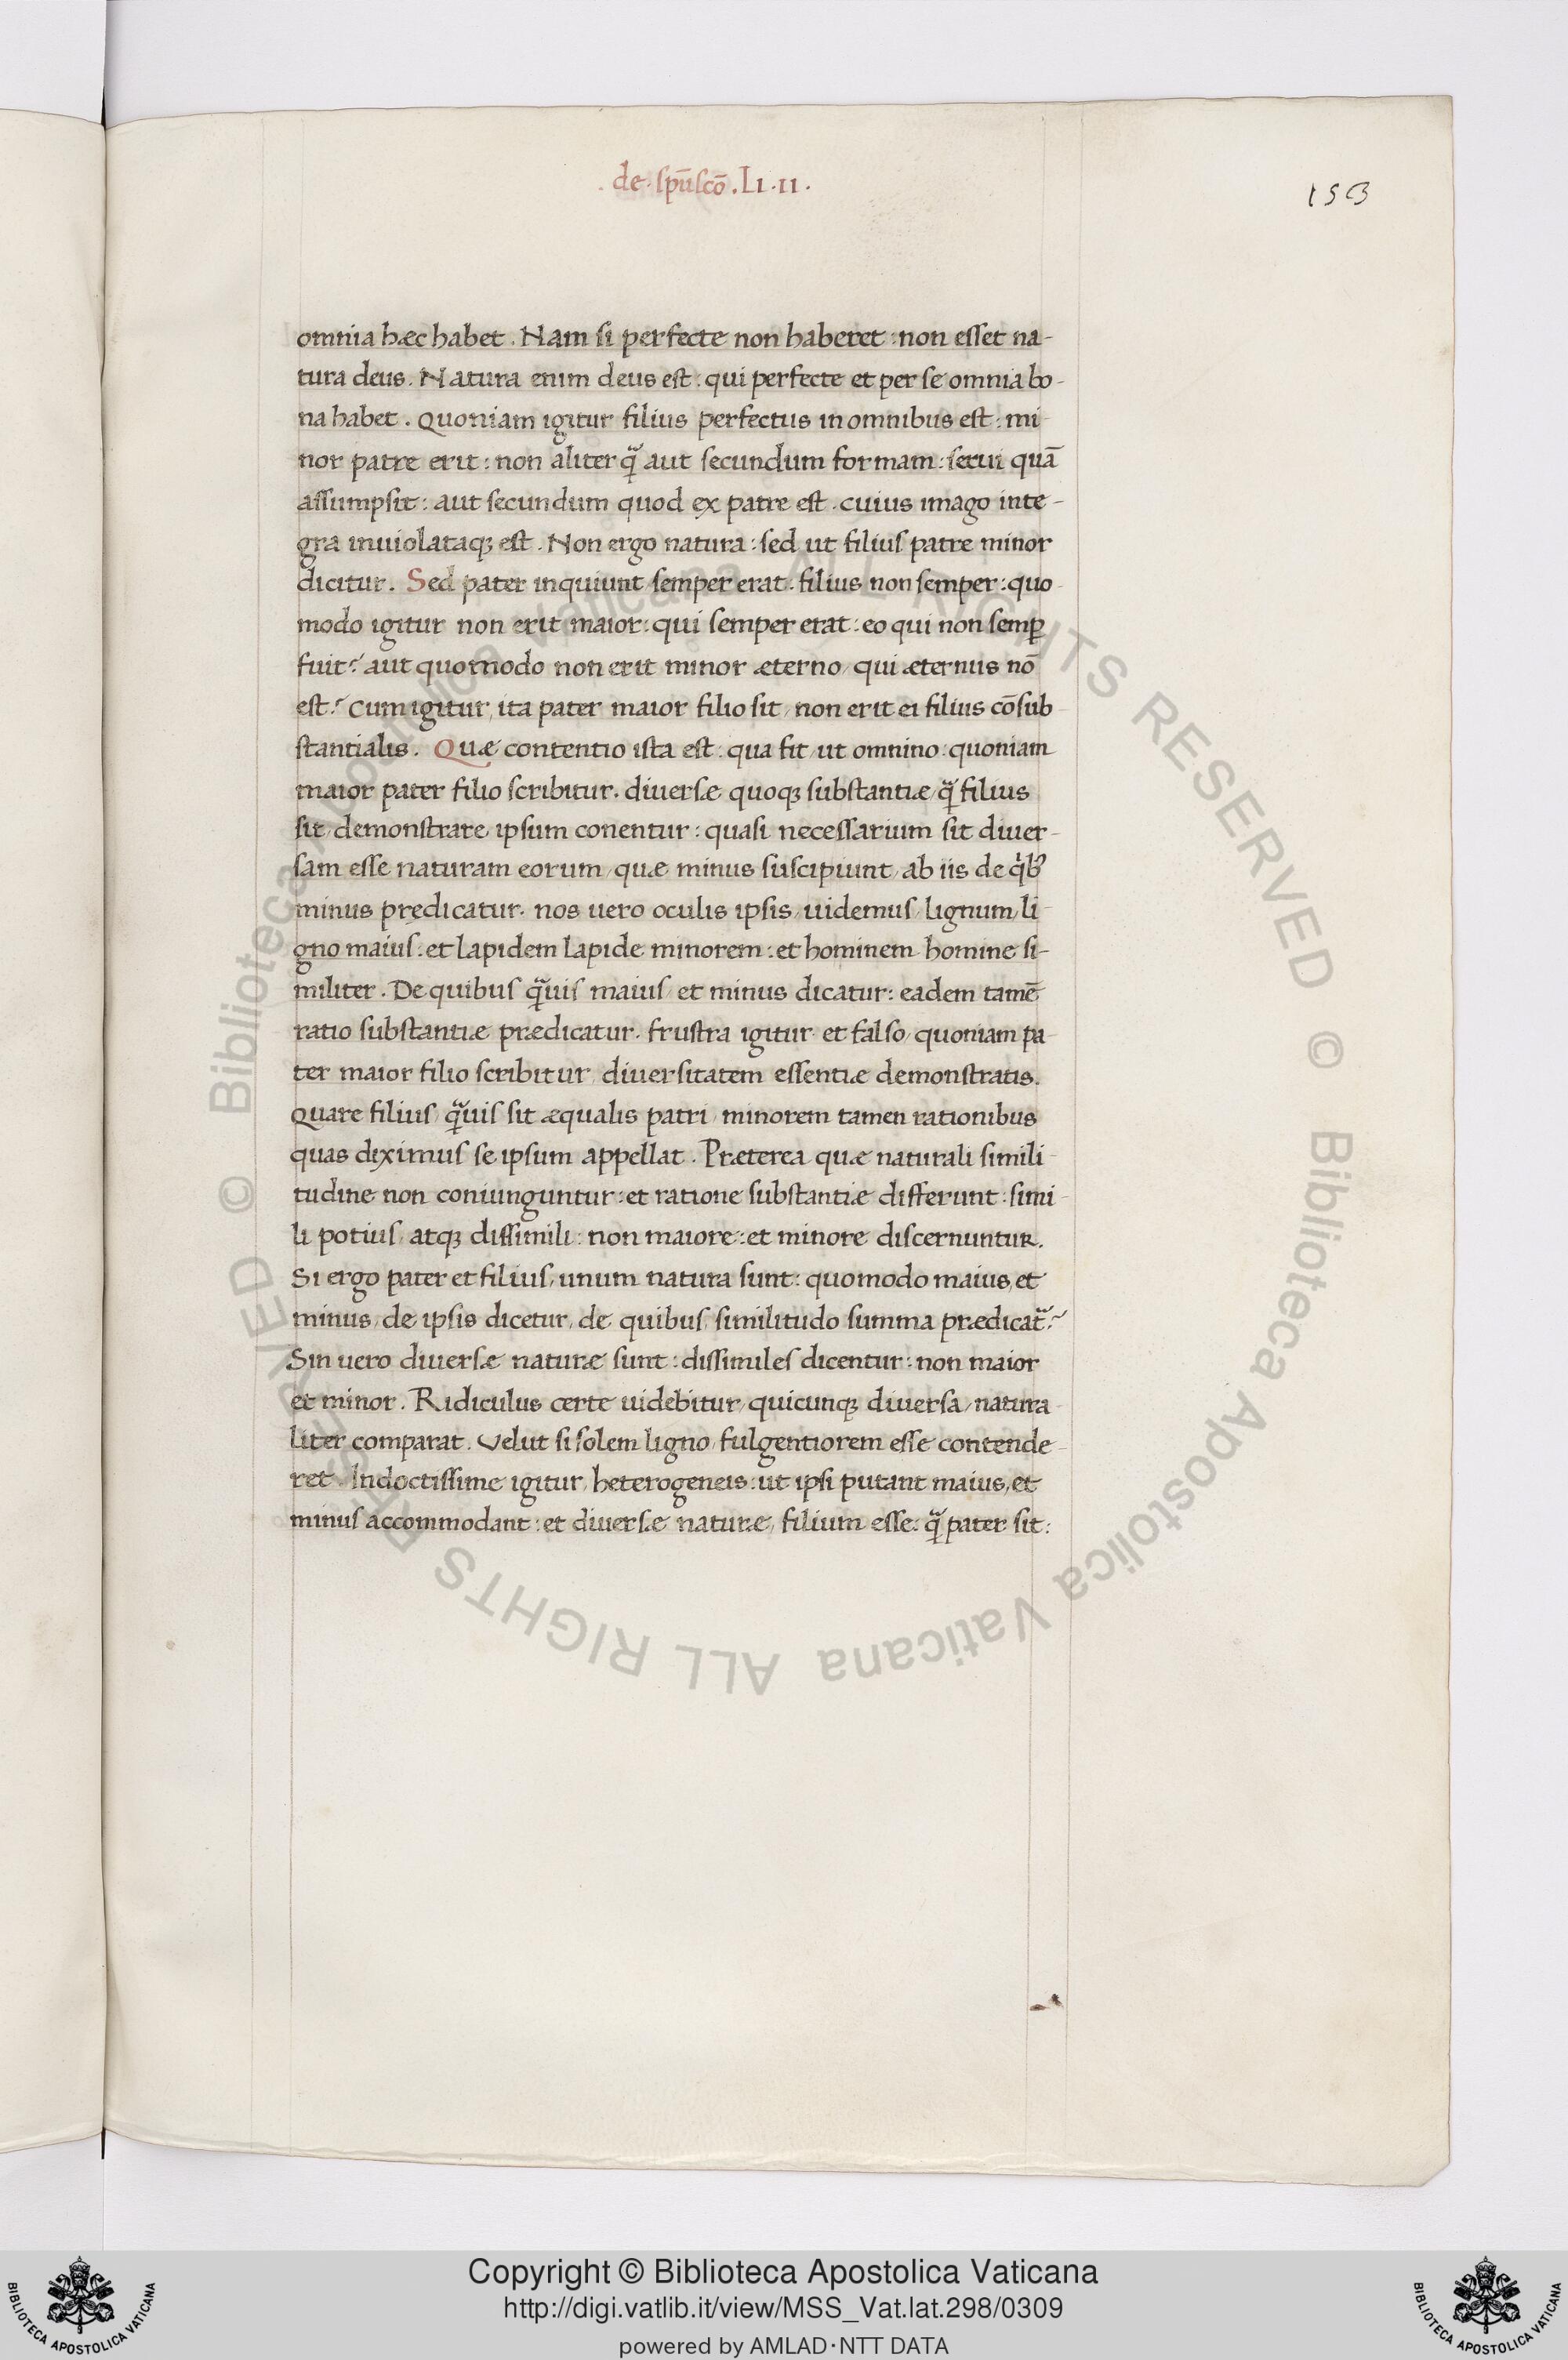 .de.sp̄u sc̄o.Li.ii.
153
omnia hæc habet. Nam si perfecte non haberet: non esset na-
tura deus. Natura enim deus est: qui perfecte et per se omnia bo-
na habet. Quoniam igitur filius perfectus in omnibus est: mi-
nor patre erit: non aliter q̃ aut secundum formam: serui quā
assumpsit: aut secundum quod ex patre est. cuius imago inte-
gra inuiolataqꝫ est. Non ergo natura: sed ut filius patre minor
dicitur. Sed pater inquiunt semper erat. filius non semper: quo-
modo igitur non erit maior: qui semper erat: eo qui non semꝑ
fuit? aut quomodo non erit minor æterno, qui æternus nō
est? Cum igitur, ita pater maior filio sit, non erit ei filius cōsub-
stantialis. Quæ contentio ista est: qua fit, ut omnino: quoniam
maior pater filio scribitur. diuersæ quoqꝫ substantiæ, q̃ filius
sit, demonstrare, ipsum conentur: quasi necessarium sit diuer-
sam esse naturam eorum, quæ minus suscipiunt, ab iis de qͥbꝰ
minus prędicatur. nos uero oculis ipsis, uidemus, lignum, li-
gno maius: et lapidem lapide minorem: et hominem homine si-
militer. De quibus q̃uis maius, et minus dicatur: eadem tamē
ratio substantiæ prædicatur. frustra igitur et falso, quoniam pa-
ter maior filio scribitur, diuersitatem essentiæ demonstratis.
Quare filius, q̃uis sit æqualis patri, minorem tamen rationibus
quas diximus se ipsum appellat. Præterea quæ naturali simili-
tudine non coniunguntur: et ratione substantiæ differunt: simi-
li potius, atqꝫ dissimili: non maiore: et minore discernuntur.
Si ergo pater et filius, unum natura sunt: quomodo maius, et
minus, de ipsis dicetur, de quibus, similitudo summa prædicat̃?
Sin uero diuersæ naturæ sunt: dissimiles dicentur: non maior
et minor. Ridiculus certe uidebitur, quicunqꝫ diuersa, natura-
liter comparat. Velut si solem ligno, fulgentiorem esse contende-
ret. Indoctissime igitur, heterogeneis: ut ipsi putant maius, et
minus accommodant: et diuersæ naturæ, filium esse: q̃ pater sit:
© Biblioteca Apostolica Vaticana ALL RIGHTS RESERVED © Biblioteca Apostolica Vaticana ALL RIGHTS RESERVED
Copyright © Biblioteca Apostolica Vaticana
http://digi.vatlib.it/view/MSS_Vat.lat.298/0309
powered by AMLAD·NTT DATA
BIBLIOTECA APOSTOLICA VATICANA
BIBLIOTECA APOSTOLICA VATICANA